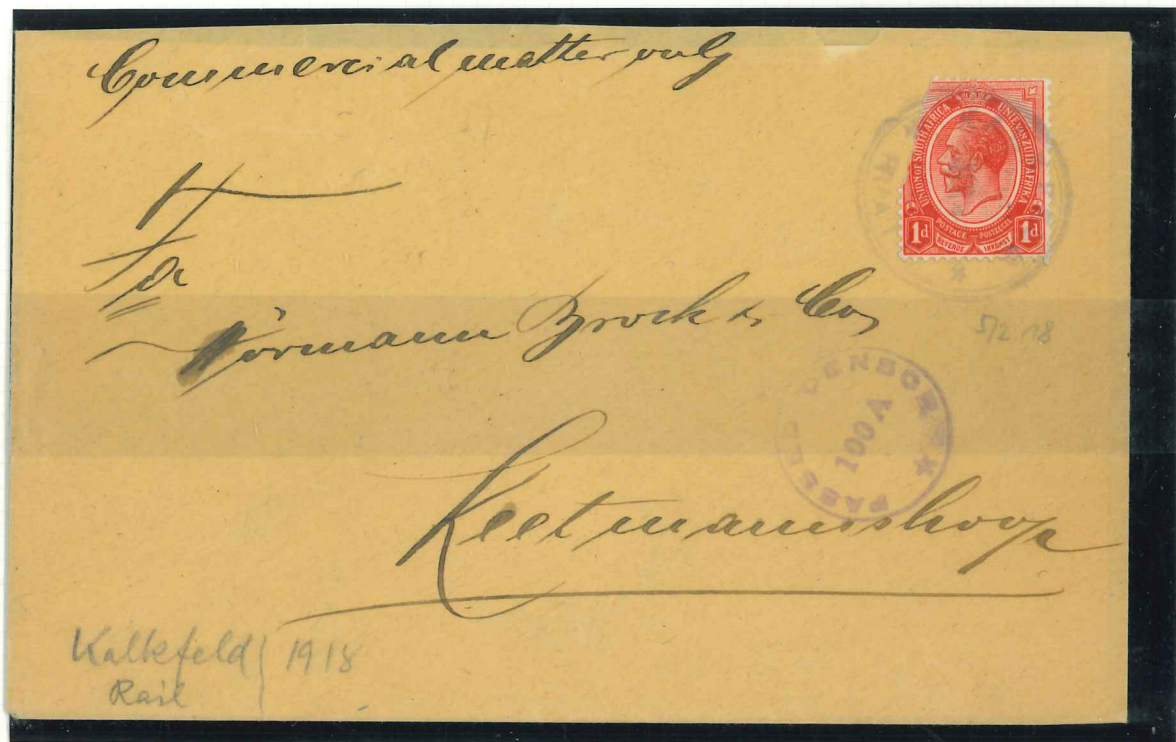 Commercial matter only
UNION OF SOUTH AFRICA
UNIE VAN ZUID AFRIKA
POSTAGE POSTZEGEL
1d REVENUE INKOMST 1d
Wörmann Brock & Co,
5/2.18
PASSED CENSOR
100A
Keetmannshoop
Kalkefeld 1918
Rail